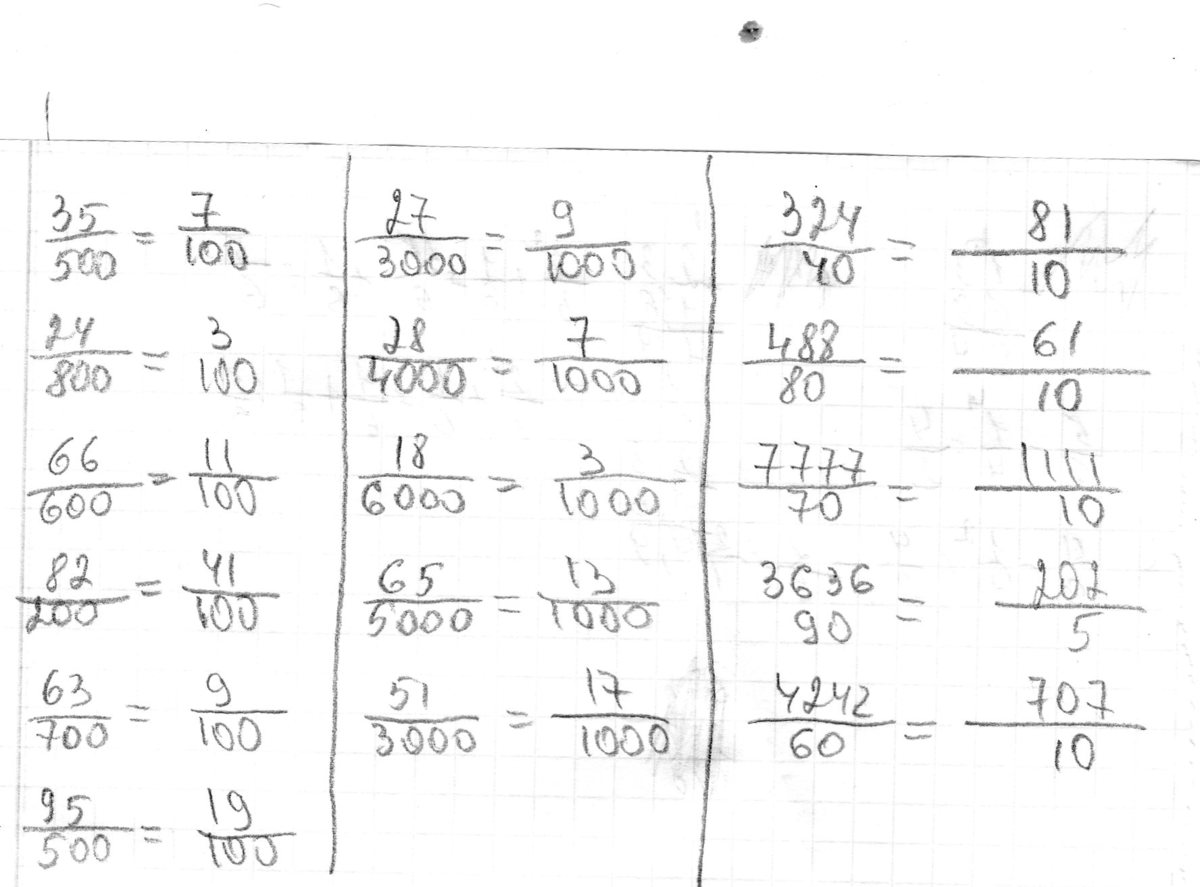 35/500 = 7/100
24/800 = 3/100
66/600 = 11/100
82/200 = 41/100
63/700 = 9/100
95/500 = 19/100
27/3000 = 9/1000
28/4000 = 7/1000
18/6000 = 3/1000
65/5000 = 13/1000
51/3000 = 17/1000
324/40 = 81/10
488/80 = 61/10
7777/70 = 1111/10
3636/90 = 202/5
4242/60 = 707/10